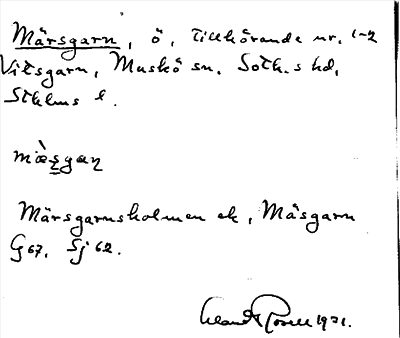 Märsgarn, ö, tillhörande nr. 1-2
Vitsgarn, Muskö sn. Soth.s hd,
Sthlms l.
mæ̀s̱gaṉ
Märsgarnsholmen ek, Mäsgarn
G 67. Sj 62.
1971.